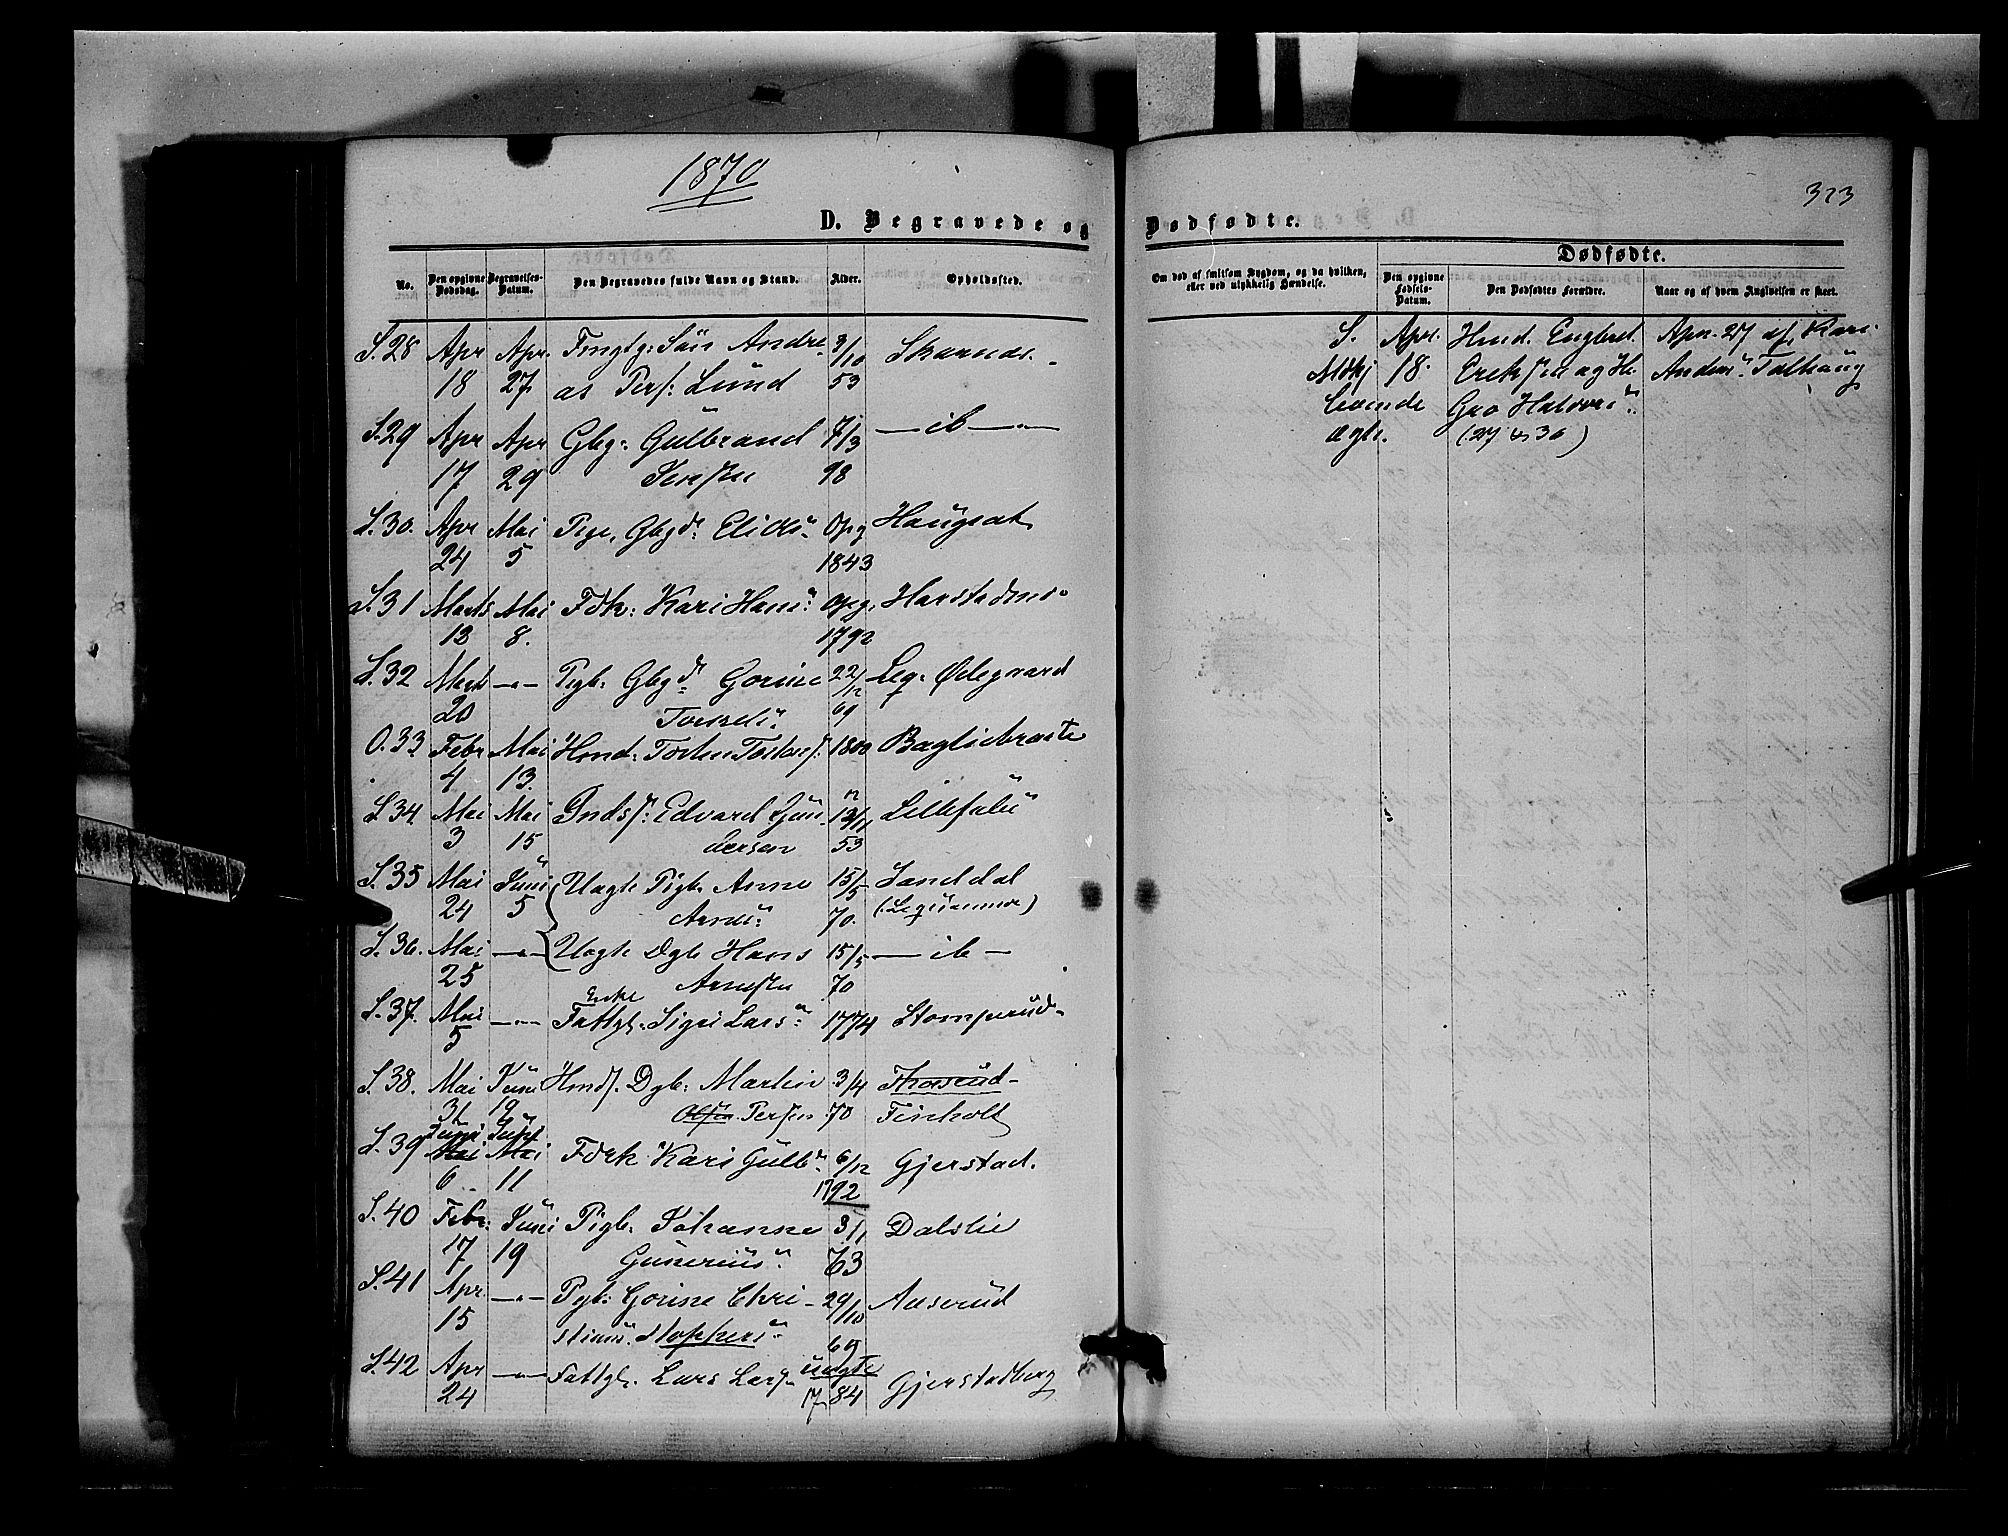 1870
323
D. Begravede og Dødfødte.
Dødfødte.
No.
Den opgivne Dødsdag.
Begravelses-Datum.
Den Begravedes fulde Navn og Stand.
Alder.
Opholdssted.
Om død af smitsom Sygdom, og da hvilken, eller ved ulykkelig Hændelse.
Den opgivne Fødsels-Datum.
Den Dødfødtes Forældre.
Naar og af hvem Angivelsen er skeet.
S. 28 Apr Apr. Søn Andre- 3/10
18 27 as Pers: Lund 53
S. 29 Apr Apr Gbg: Gulbrand 7/3 — ib —
17 29 98
S. 30. Apr Mai Pige, Gbgd: Opg Haugsat
24 5 1843
S. 31 Marts Mai Fdk: Kari Hans: Opg. Harstad
12 8. 1792
S. 32 Marts —"— Pigb. Gbgd: Gorine 22/12 Leq. Ødegaard
20 69
O. 33 Febr Mai Hmd: 1800 Bagliebraate
4 13.
S 34 Mai Mai Indss: Edvard Gun-
3 15 dersen 53
S. 35 Mai Juni Uægte Pigb. Anne 15/5 Sanddal
24 5 Arnes: 70.
S. 36. Mai —"— Uægte Dgb Hans 15/5 — ib —
25 Arnesen 70
Enke
S. 37. Mai —"— Fattgl. Sigri Lars: 1774 Stomperud
5
S. 38. Mai Juni Hmds. Dgb. Martin 3/4 Thorsrud-
31 19 Olsen Persen 70 Finholt
Juni Juni
S. 39 Mai Mai Fdrk Kari Gulb: 6/12 Gjerstad.
6 11 1792
S. 40 Febr. Juni Pigb. Johanne 3/1 Dalslie
17 19 Gunerius: 63
S. 41 Apr —"— Pgb: Gorine Chri- 29/10 Aaserud
15 stians: 69
S. 42 Apr —"— Fattgl. Lars Lars. uægte Gjerstadberg
24 1784
S. Apri. Hmd. Engebret Apr. 27 af Kari
18. Ereksen og H. Anders: Talhaug
levende Gro Halvors:
ægte. (27 & 36)